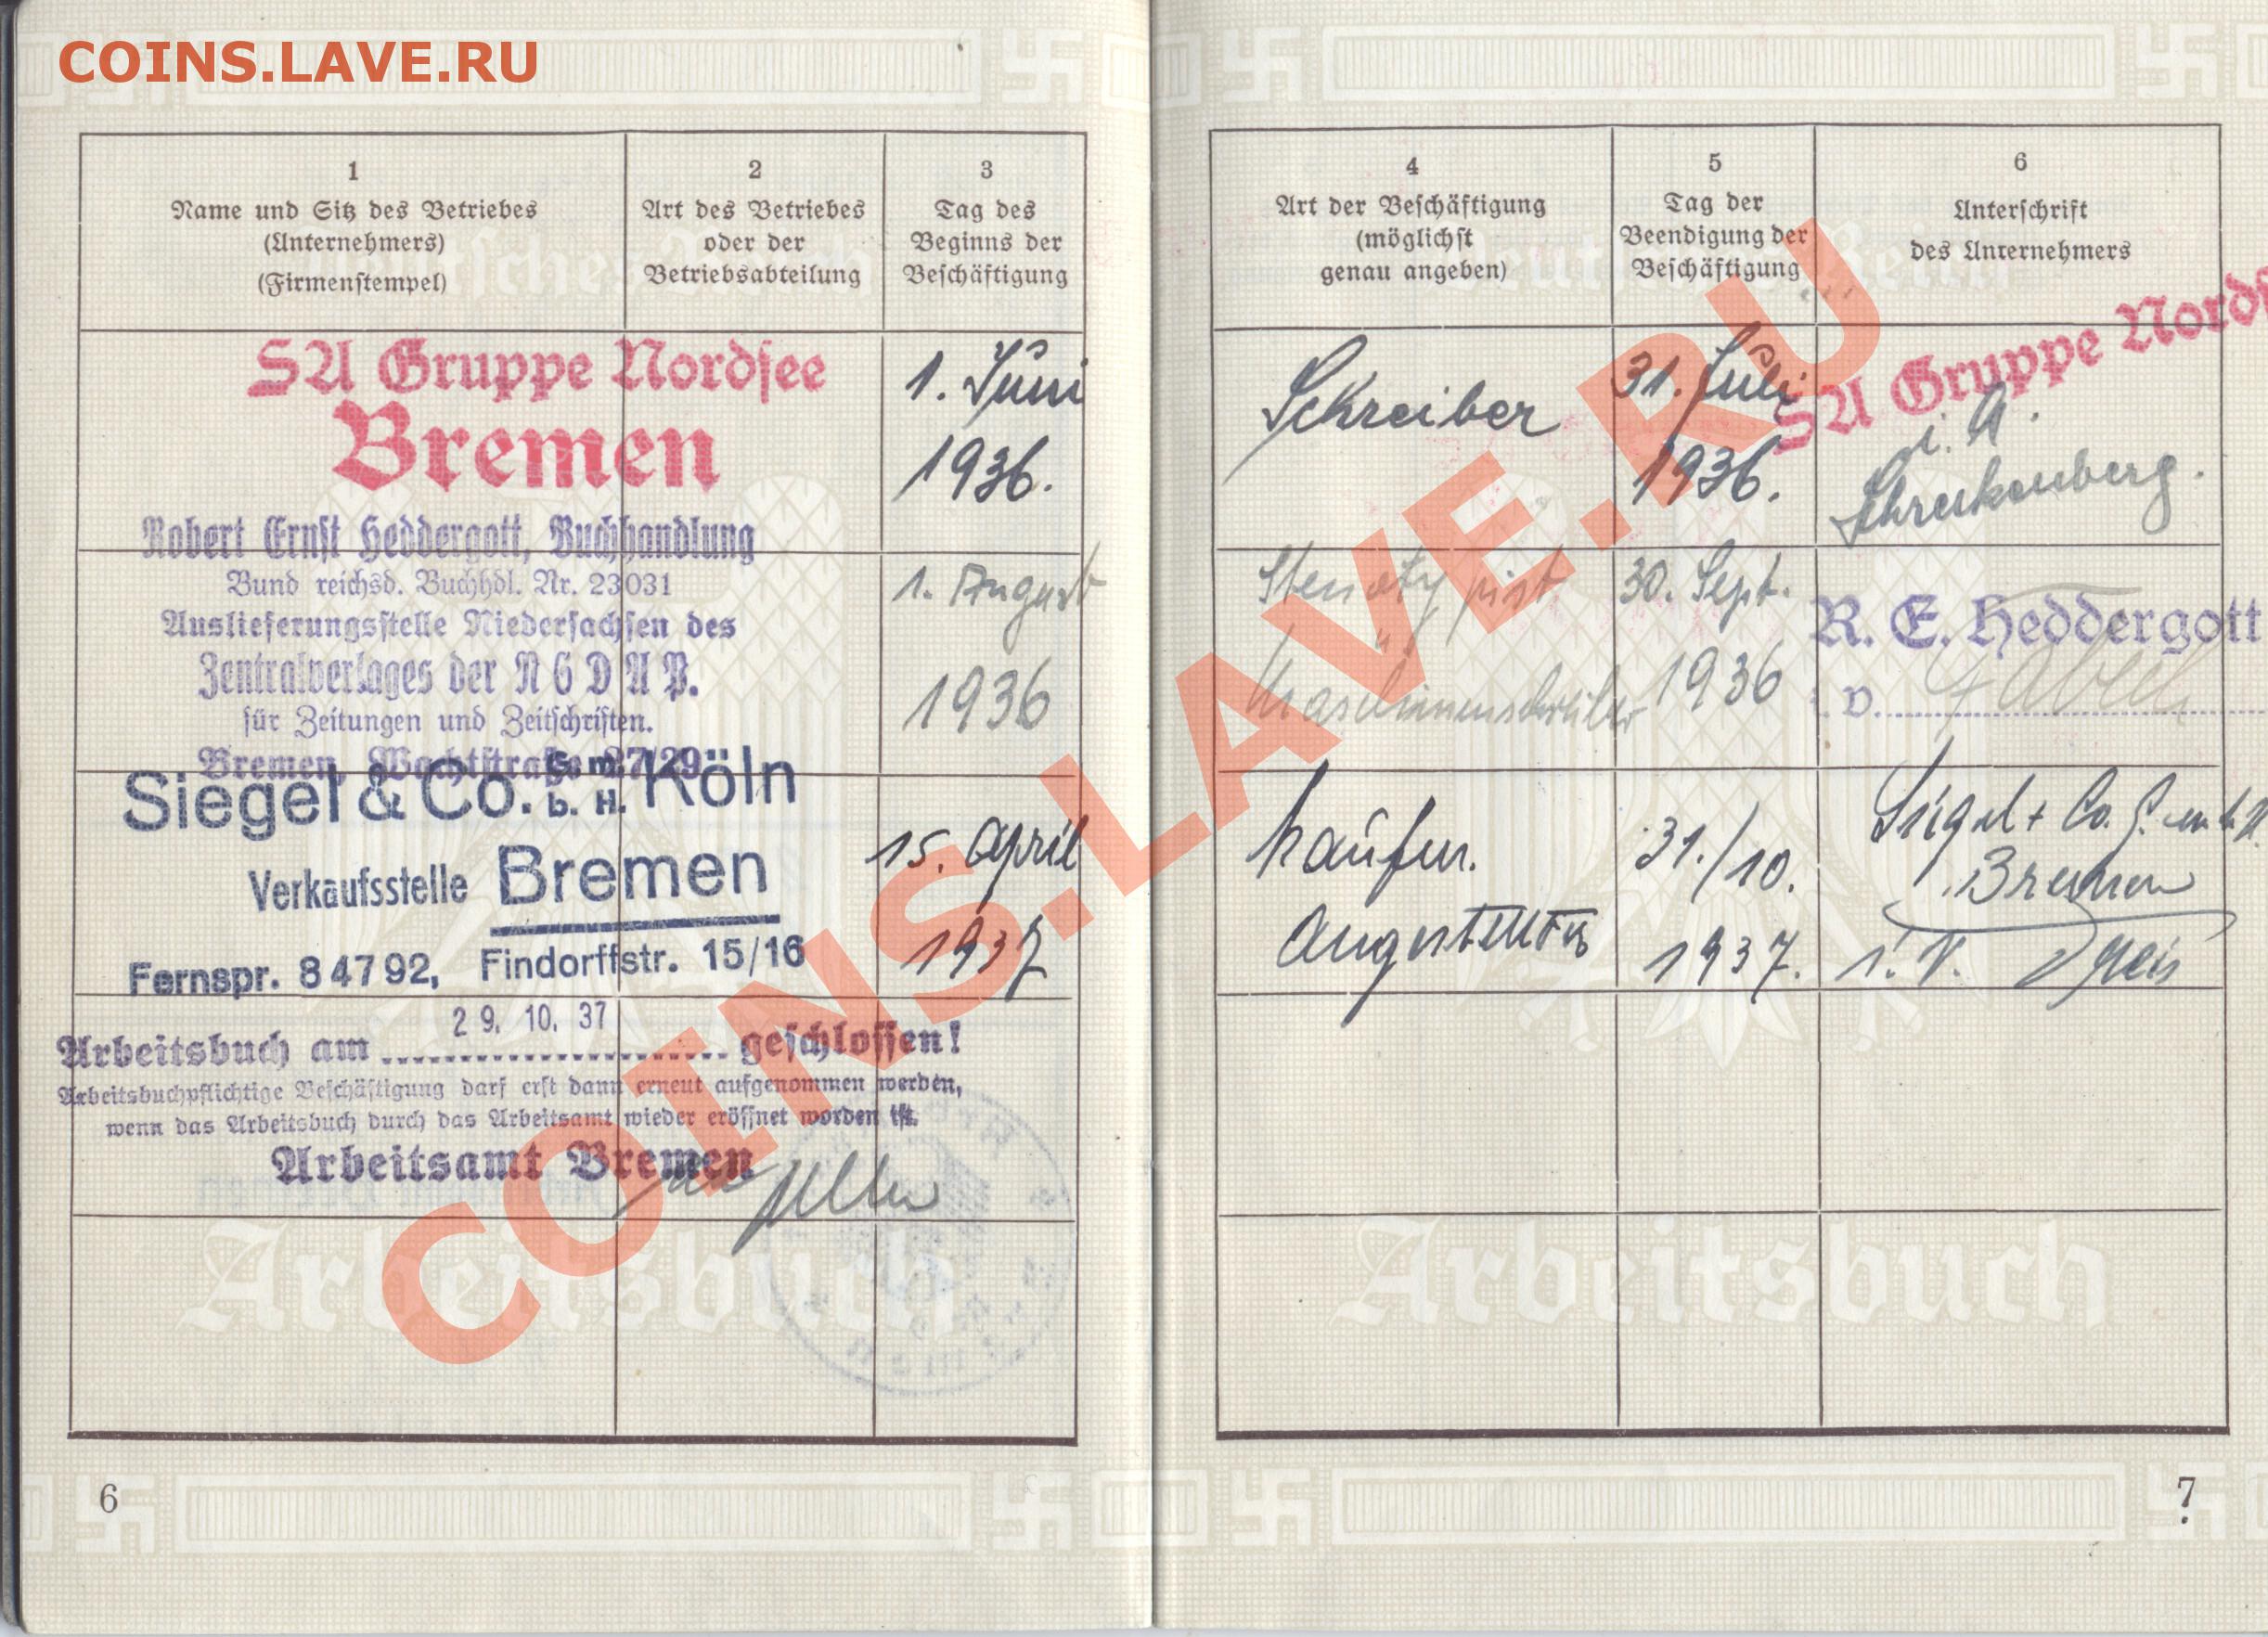 COINS.LAVE.RU
1
Name und Sitz des Betriebes
(Unternehmers)
(Firmenstempel)
2
Art des Betriebes
oder der
Betriebsabteilung
3
Tag des
Beginns der
Beschäftigung
SA Gruppe Nordsee
Bremen
1. Juni
1936.
Robert Ernst Heddergott, Buchhandlung
Bund reichsd. Buchhdl. Nr. 23031
Auslieferungsstelle Niedersachsen des
Zentralverlages der NSDAP.
für Zeitungen und Zeitschriften.
Bremen, Wachtstraße 27/29
1. August
1936
Siegel & Co. G.m. b.H. Köln
Verkaufsstelle Bremen
Fernspr. 84792, Findorffstr. 15/16
15. April
1937
29. 10. 37
Arbeitsbuch am geschlossen!
Arbeitsbuchpflichtige Beschäftigung darf erst dann erneut aufgenommen werden,
wenn das Arbeitsbuch durch das Arbeitsamt wieder eröffnet worden ist.
Arbeitsamt Bremen
Arbeitsbuch
6
4
Art der Beschäftigung
(möglichst
genau angeben)
5
Tag der
Beendigung der
Beschäftigung
6
Unterschrift
des Unternehmers
Schreiber
31. Juli
1936.
SA Gruppe Nords
i. A.
Schreckenberg.
Stenotypist
u
Maschinenschreiber
30. Sept.
1936
R. E. Heddergott
kaufm.
Angestellter
31./10.
1937.
Siegel + Co. G.m.b.H.
Bremen
i. V.
Arbeitsbuch
7
COINS.LAVE.RU